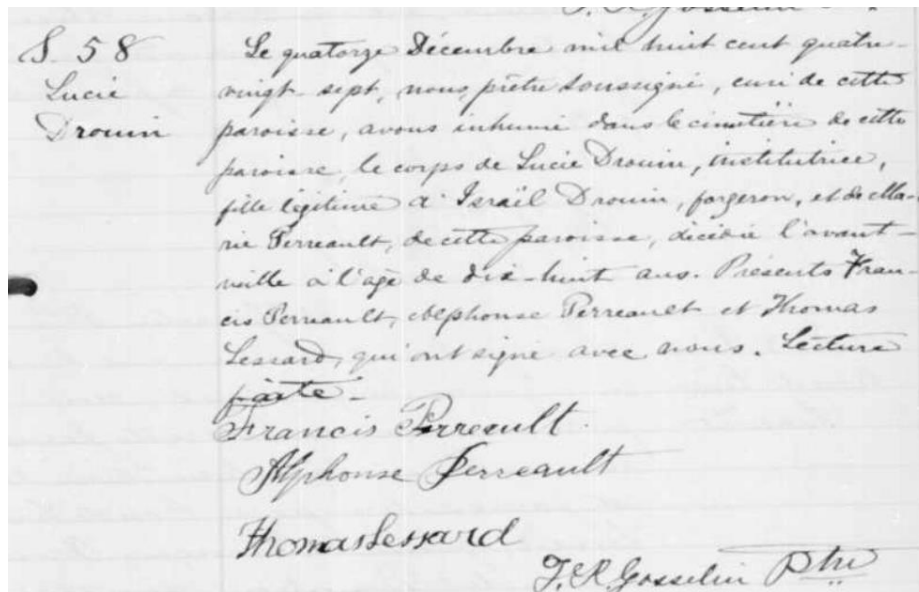 S. 58
Lucie
Drouin
Le quatorze Décembre mil huit cent quatre-
vingt-sept, nous, prêtre soussigné, curé de cette
paroisse, avons inhumé dans le cimetière de cette
paroisse, le corps de Lucie Drouin, institutrice,
fille légitime d'Israël Drouin, forgeron, et de Ma-
rie Perreault, de cette paroisse, décédée l'avant-
veille à l'age de dix-huit ans. Présents Fran-
cis Perreault, Alphonse Perreault et Thomas
Lessard, qui ont signé avec nous. Lecture
faite.
Francis Perreault
Alphonse Perreault
Thomas Lessard
Gosselin Ptre